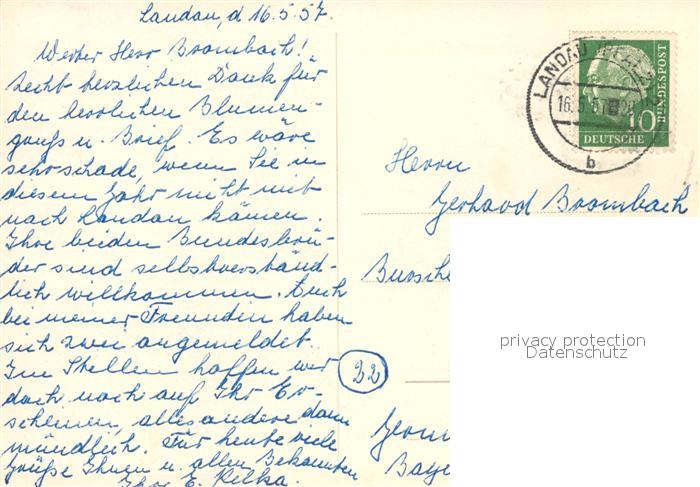 Landau, d 16.5.57.
Werter Herr Brombach!
Recht herzlichen Dank für
den herrlichen Blumen-
gruß u. Brief. Es wäre
sehr schade, wenn Sie in
diesem Jahr nicht mit
nach Landau kämen.
Ihre beiden Bundesbrü-
der sind selbstverständ-
lich willkommen. Auch
bei meiner Freundin haben
sich zwei angemeldet.
Im Stellen hoffen wir
doch noch auf Ihr Er-
scheinen, alles andere dann
mündlich. Für heute viele
Grüße Ihnen u. allen Bekannten
Ihre E. Kelka.
LANDAU
16.5.57
b
10
DEUTSCHE
BUNDESPOST
Herrn
Gerhard Brombach
Bursch
22
Germ
Baye
privacy protection
Datenschutz